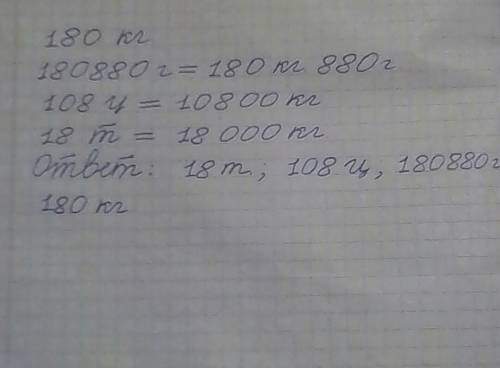 180 кг
180880 г = 180 кг 880 г
108 ц = 10800 кг
18 т = 18 000 кг
Ответ: 18 т; 108 ц, 180880 г
180 кг